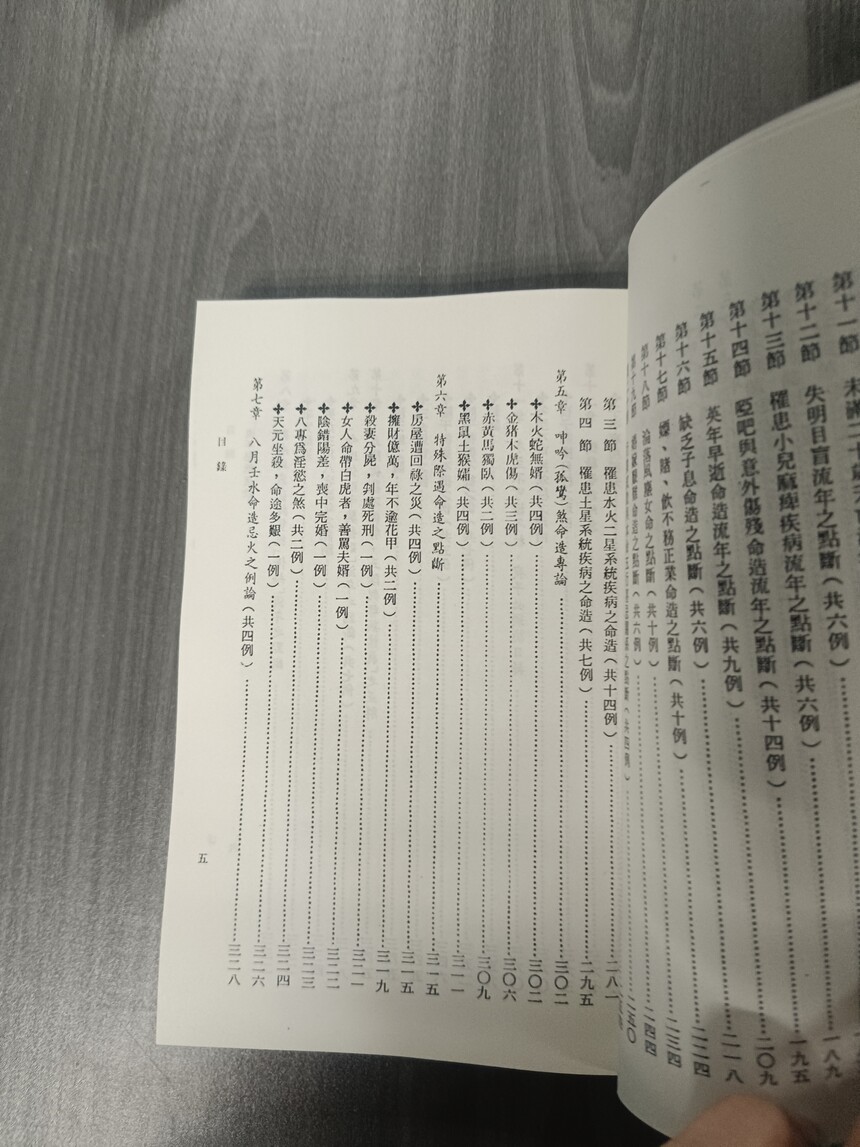 第十一節
第十二節 失明目盲流年之點斷（共六例）⋯⋯一八九
第十三節 罹患小兒麻痺疾病流年之點斷（共六例）⋯⋯一九五
第十四節 啞吧與意外傷殘命造流年之點斷（共十四例）⋯⋯二〇九
第十五節 英年早逝命造流年之點斷（共九例）⋯⋯二一八
第十六節 缺乏子息命造之點斷（共六例）⋯⋯二二四
第十七節 嫖、賭、飲不務正業命造之點斷（共十例）⋯⋯二三四
第十八節 淪落風塵女命之點斷（共十例）⋯⋯二四四
第十九節 命造之點斷（共六例）⋯⋯二五〇
第三節 罹患水火二星系統疾病之命造（共十四例）⋯⋯二八一
第四節 罹患土星系統疾病之命造（共七例）⋯⋯二九五
第五章 呻吟（孤鸞）煞命造專論⋯⋯三〇二
✤木火蛇無婿（共四例）⋯⋯三〇二
✤金猪木虎傷（共三例）⋯⋯三〇六
✤赤黃馬獨臥（共二例）⋯⋯三〇九
✤黑鼠土猴孀（共四例）⋯⋯三一一
第六章 特殊際遇命造之點斷⋯⋯三一五
✤房屋遭回祿之災（共四例）⋯⋯三一五
✤擁財億萬，年不逾花甲（共二例）⋯⋯三一九
✤殺妻分屍，判處死刑（一例）⋯⋯三二一
✤女人命帶白虎者，善罵夫婿（一例）⋯⋯三二二
✤陰錯陽差，喪中完婚（一例）⋯⋯三二三
✤八專爲淫慾之煞（共二例）⋯⋯三二四
✤天元坐殺，命途多艱（一例）⋯⋯三二六
第七章 八月壬水命造忌火之例論（共四例）⋯⋯三二八
目錄
五